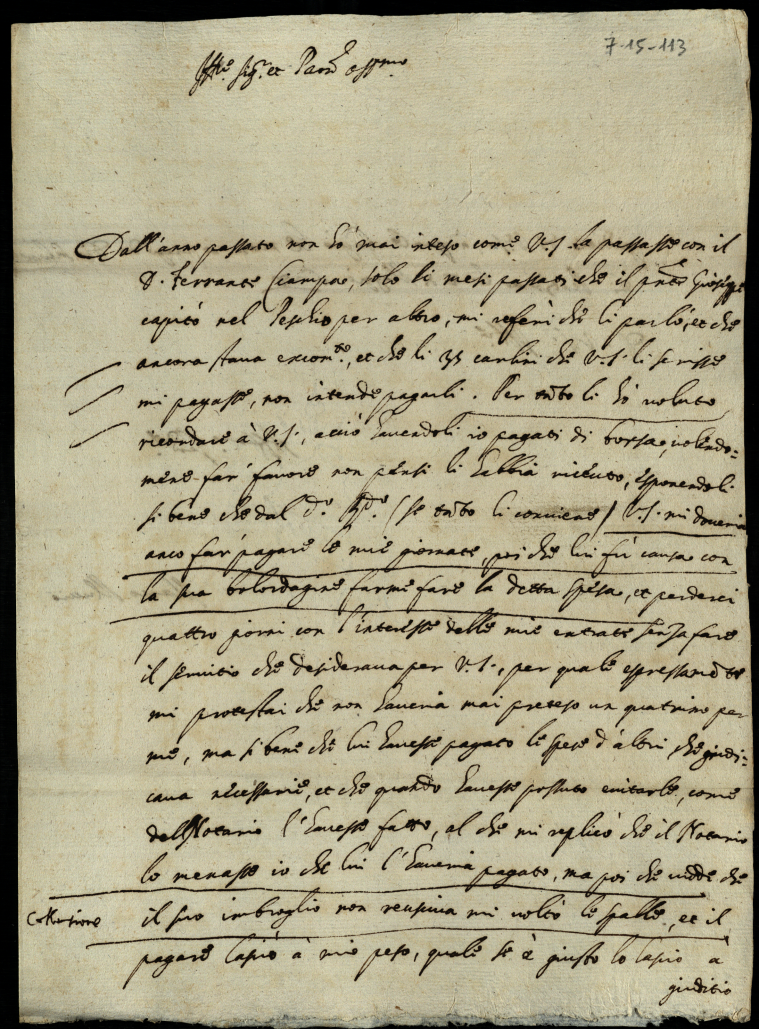 7-15-113
Ill.re Sig.r et Pa̅on oss.mo
Dall'anno passato non hò mai inteso come V.S. la passasse con il
D. Ferrante Ciampao, solo li mesi passati che il p̅nte Gioseppe
capitò nel Peschio per altro, mi referì che li parlò, et che
ancora stava excom.to, et che li 35 carlini che V.S. li scrisse
mi pagasse, non intende pagarli. Per ta̅to li hò voluto
ricordare à V.S., acciò havendoli io pagati di borsa, volendo=
mene far' favore non pensi li habbia riceuto, esponendoli
si bene che dal d.o (se ta̅to li conviene) V.S. mi doveria
anco far' pagare le mie giornate, poi che lui fù causa con
la sua balordagine farme fare la detta spesa, et perderci
quattro giorni con l'interesse delle mie entrate senza fare
il servitio che desiderava per V.S., per quale espressame̅te
mi protestai che non haveria mai preteso un quatrino per
me, ma si bene che lui havesse pagato le spese d'altri, che giudi=
cava necessarie, et che quando havesse possuto evitarle, come
dell Notario l'havesse fatto, al che mi replicò che il Notario
lo menasse io che lui l'haveria pagato, ma poi che vedde che
Collusione
il suo imbroglio non reusciva mi voltò le spalle, et il
pagare lasciò à mio peso, quale se è giusto lo lascio à
giuditio